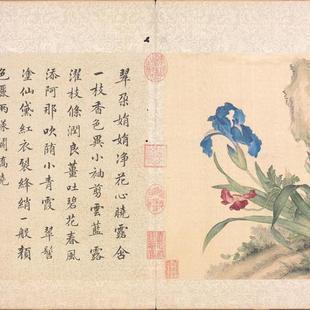 翠朶娟娟净花心曉露含
一枝香色異小袖剪雲藍 露
濯枝條潤良薑吐碧花春風
添阿那吹小青霞 翠髻
塗仙黛紅衣裂絳綃一般顏
色兩樣